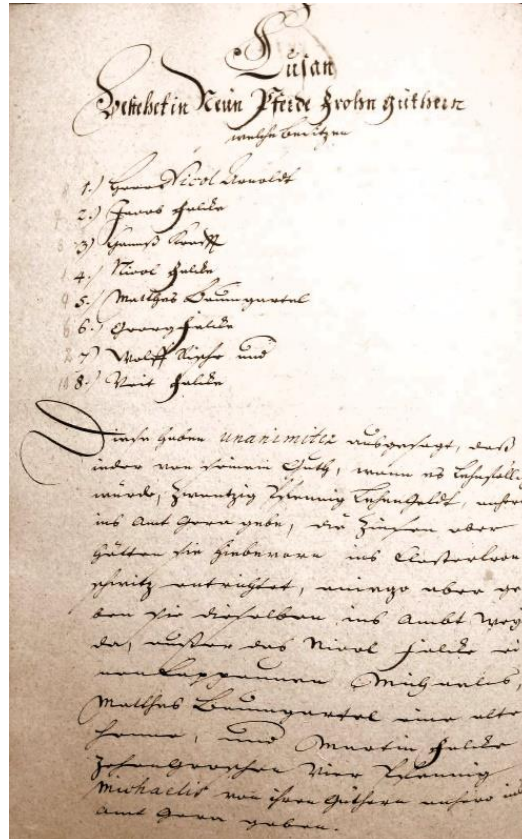 Lusan
Bestehet in Neün Pferde Frohn güthern
welche besitzen
1.) Herr Nicol Arnoldt
2.) Jacob Falcke
3.) Hannß Krafft
4.) Nicol Falcke
5.) Matthes Baumgärtel
6.) Georg Falcke
7.) Wolff und
8.) Veit Falcke
Diese haben unanimiter ausgesagt, daß
ieder von seinem Guth, wann es Lehnfällig
würde, Zwantzig Pfennig Lehengeldt, anhero
ins Amt Gera gebe, die Zinsen aber
hätten sie hiebevorn ins Closter Cron
schwitz entrichtet, anietzo aber ge
ben sie dieselben ins Ambt Weÿ
da, außer das Nicol Falcke ei
nen Cappaunen Michaelis,
Matthes Baumgärtel eine alte
Henne, und Martin Falcke
Zehen Groschen Vier Pfennig
Michaelis von ihren Güthern anhero ins
Amt Gera geben.